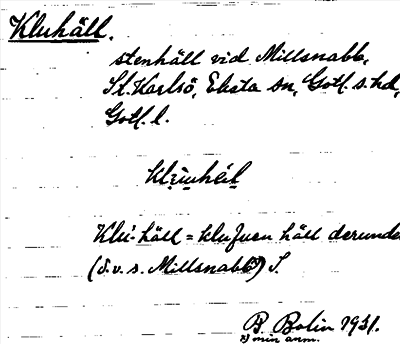 Kluhäll.
stenhäll vid Millsnabb,
St. Karlsö, Eksta sn, Gotl. s. hd,
Gotl. l.
Klu-häll = klufven häll derunder
(d.v.s. Millsnabb x)) S.
B. Bolin 1931.
x) min anm.